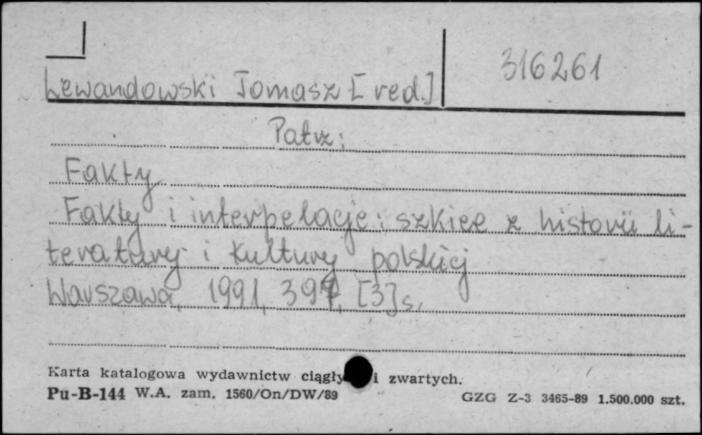 316261
Lewandowski Tomasz [red.]
Patrz:
Fakty
Fakty i interpelacje: szkice z historii li-
teratury i kultury polskiej
Warszawa, 1991, 397, [3] s.
Karta katalogowa wydawnictw ciągły i zwartych.
Pu-B-144 W.A. zam. 1560/On/DW/89 GZG Z-3 3465-89 1.500.000 szt.